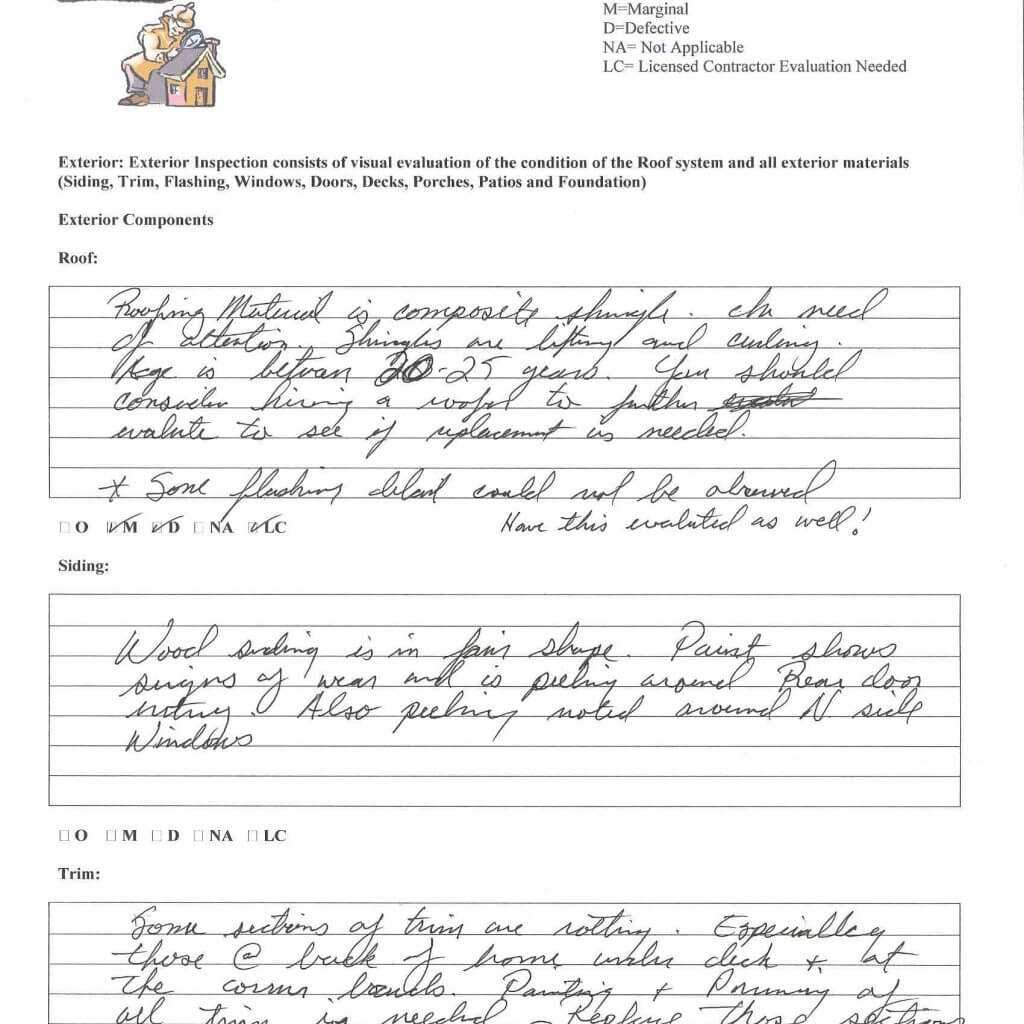 M=Marginal
D=Defective
NA= Not Applicable
LC= Licensed Contractor Evaluation Needed
Exterior: Exterior Inspection consists of visual evaluation of the condition of the Roof system and all exterior materials
(Siding, Trim, Flashing, Windows, Doors, Decks, Porches, Patios and Foundation)
Exterior Components
Roof:
Roofing Material is composite shingle. In need
of attention. Shingles are lifting and curling.
Age is between 20-25 years. You should
consider hiring a roofer to further
evalute to see if replacement is needed.
* Some flashing detail could not be observed
☐ O ☑ M ☑ D ☐ NA ☑ LC
Have this evaluted as well!
Siding:
Wood siding is in fair shape. Paint shows
signs of wear and is peeling around Rear door
entry. Also peeling noted around N side
Windows
☐ O ☐ M ☐ D ☐ NA ☐ LC
Trim:
Some sections of trim are rotting. Especially
those @ back of home under deck + at
the corner boards. Painting + Priming of
all trim is needed - Replace those sections